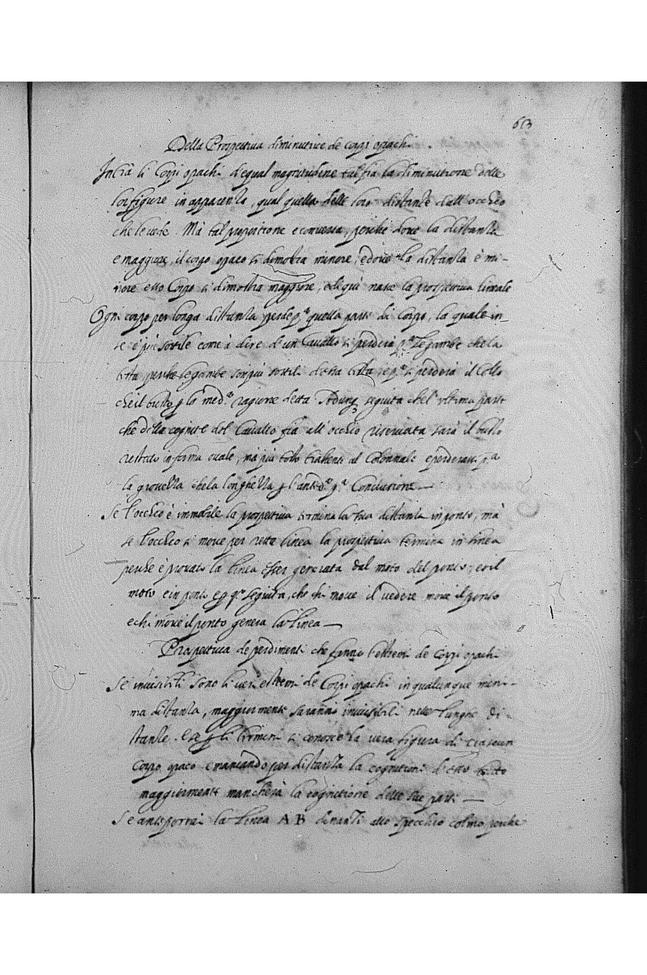 63
Della Prospettiva diminutiva de corpi opachi
Infrà li Corpi opachi d'equal magnitudine tal fia la diminutione delle
lor figure in apparenza, qual quella delle loro distanze dall'occhio
che le vede. Mà tal proportione è conversa, perche dove la distanza
è maggiore, il corpo opaco si dimostra minore, e dove la distanza è mi-
nore esso Corpo si dimostra maggiore, e di qui nasce la prospettiva lineale
Ogni corpo per longa distanza perde pª quella parte di Corpo, la quale in
se è piu sottile come à dire d'un Cavallo si perderà pª le gambe che la
testa perche le gambe son piu sottili di essa testa e pª si perderà il Collo
che il busto p la medª ragione detta seguita che l'ultima parte
che della cognit del Cavallo fia all'occhio riservata sarà il busto
restato in forma ovale, ma piu tosto trahente al Colonnale e perderassi pª
la grossezza che la longhezza p l'antedª pª Conclusione —
Se l'occhio è immobile la prospettiva termina la sua distanza in ponto, mà
se l'occhio si move per retta linea la prospettiva termina in linea
perche è provato la linea esser generata dal moto del ponto, et il
moto è in ponto seguita, che chi move il vedere move il ponto
e chi move il ponto genera la linea —
Prospettiva de perdimenti che fanno l'estremi de Corpi opachi
Se invisibili sono li veri estremi de Corpi opachi in qualunque mini-
ma distanza, maggiormente saranno invisibili nelle lunghe di-
stanze. E se p li termini si conosce la vera figura di ciascun
Corpo opaco e mancando per distanza la cognitione d'esso tutto
maggiormente mancherà la cognitione delle sue parti —
Se anteporrai la linea A B dinanti allo specchio colmo perche